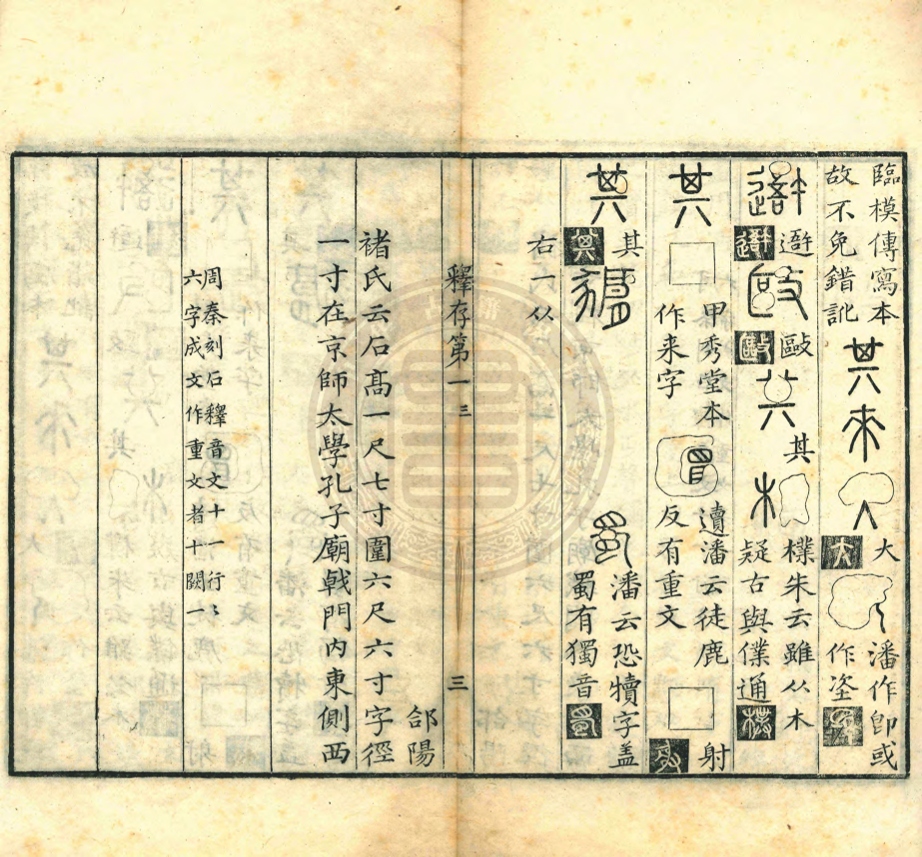 臨模傳寫本
故不免錯訛
其來
大
大
潘作卽或
作坙
其
樸朱云雖从木
疑古與僕通
樸
其
甲秀堂本
作来字
潘云徒鹿
反有重文
射
射
其
其
潘云恐犢字盖
蜀有獨音
蜀
右
釋存第一 三
三
郃陽
褚氏云石髙一尺七寸圍六尺六寸字徑
一寸在京師太學孔子廟戟門内東側西
周秦刻石釋音文十一行
六字成文作重文者十闕一